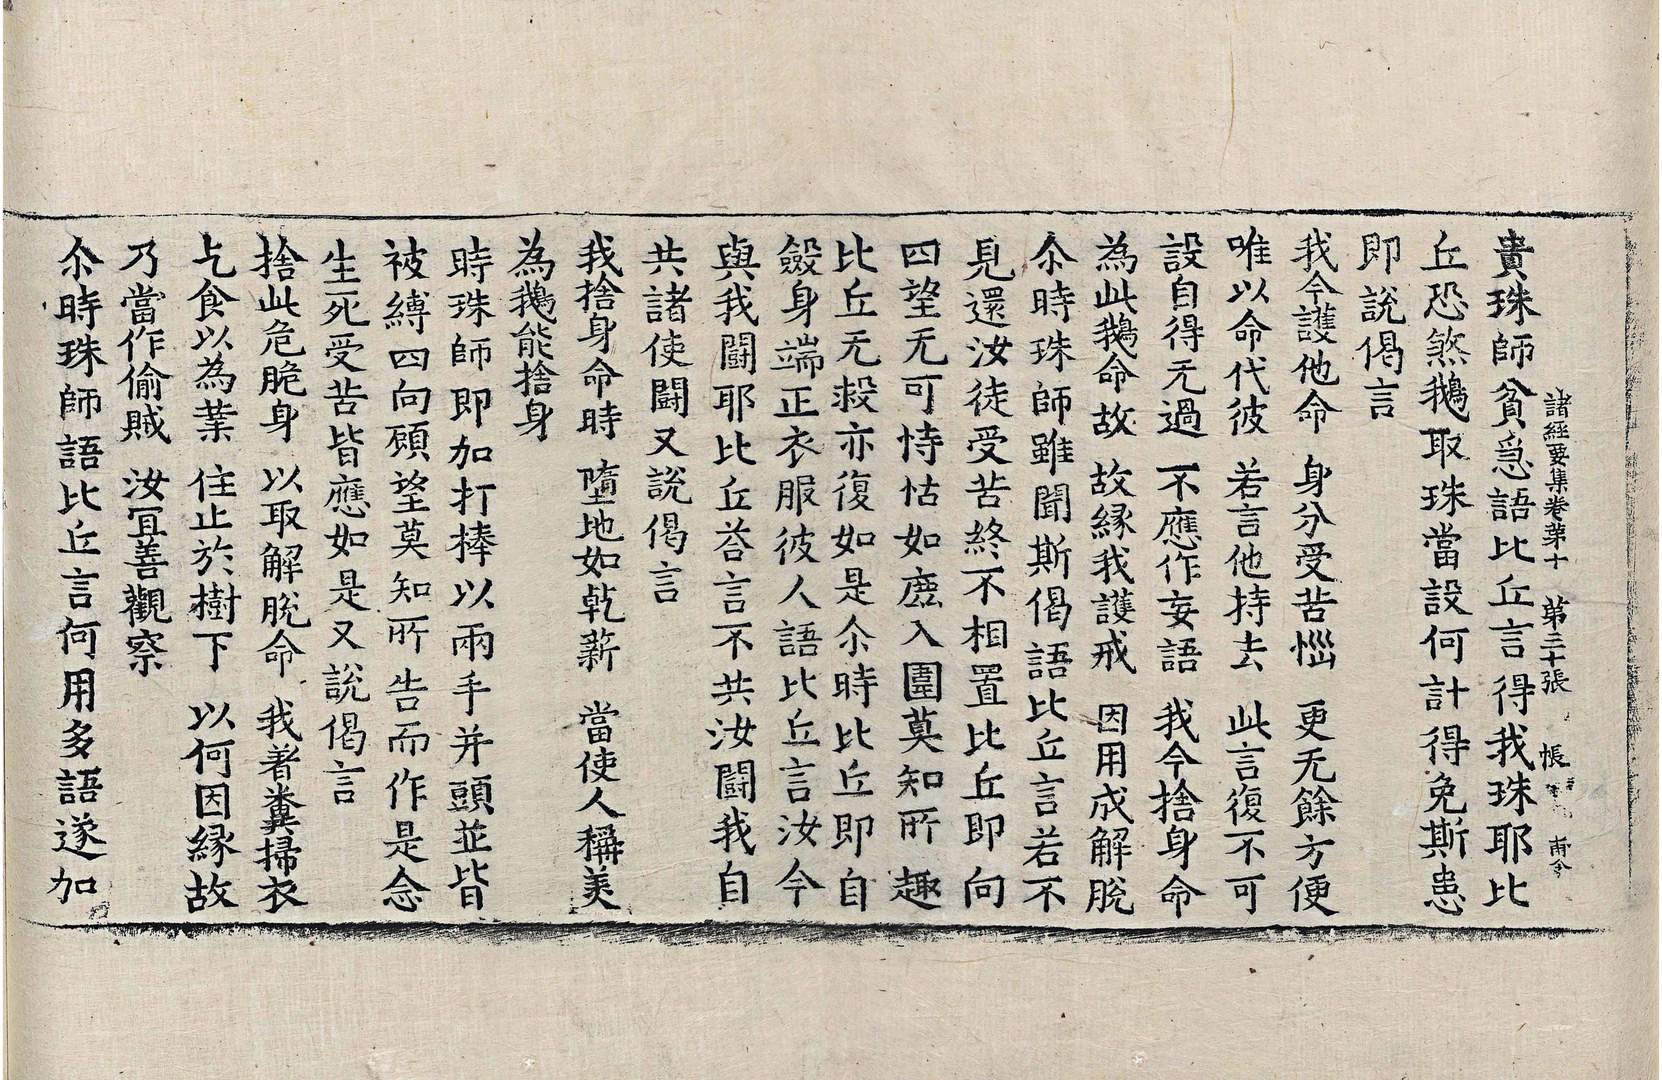 諸經要集卷苐十　第三十張　帳
貴珠師貧急語比丘言得我珠耶比
丘恐煞鵝取珠當設何計得免斯患
即說偈言
我今護他命　身分受苦惱　更无餘方便
唯以命代彼　若言他持去　此言復不可
設自得无過　不應作妄語　我今捨身命
為此鵝命故　故緣我護戒　因用成解脫
尒時珠師雖聞斯偈語比丘言若不
見還汝徒受苦終不相置比丘即向
四望无可恃怙如麞入圍莫知所趣
比丘无救亦復如是尒時比丘即自
斂身端正衣服彼人語比丘言汝今
與我鬪耶比丘荅言不共汝鬪我自
共諸使鬪又說偈言
我捨身命時　墮地如乾薪　當使人稱美
為鵝能捨身
時珠師即加打捧以兩手并頭並皆
被縛四向顧望莫知所告而作是念
生死受苦皆應如是又說偈言
捨此危脆身　以取解脫命　我著糞掃衣
乞食以為業　住止於樹下　以何因緣故
乃當作偷賊　汝冝善觀察
尒時珠師語比丘言何用多語遂加